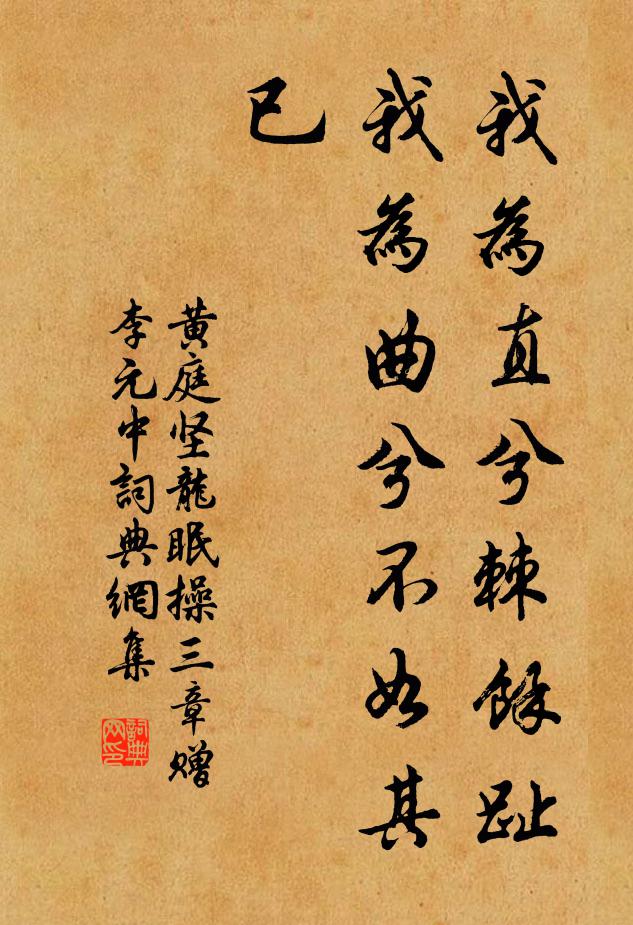 我為直兮棘餘趾
我為曲兮不如其
已
黃庭坚龍眠操三章贈
李元中詞典網集
詞典
网印